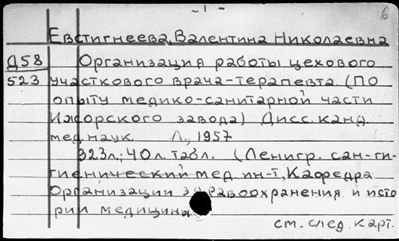 - 1 -
6
Евстигнеева, Валентина Николаевна
Д58 Организация работы цехового
523 участкового врача-терапевта (По
опыту медико-санитарной части
Ижорского завода) Дисс. канд.
мед. наук. Л., 1957
323 л; 40 л. табл. (Ленигр. сан-ги-
гиенический мед. ин-т, Кафедра
Организации здравоохранения и исто
рии медицины
см. след. карт.